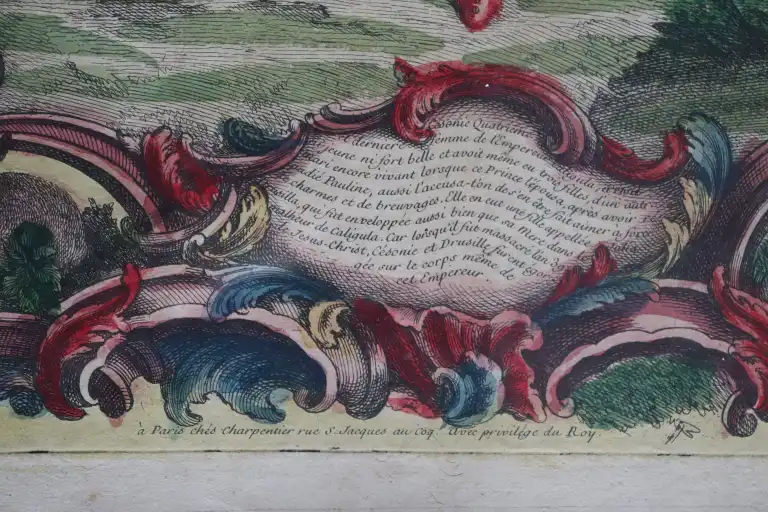 Césonie Quatrième
dernière femme de l'Empereur Caligula, n'étoit
jeune ni fort belle et avoit même eu trois filles d'un autre
mari encore vivant lorsque ce Prince l'épousa, après avoir ré
dié Pauline, aussi l'accusa-t'on de s'en être fait aimer à force
charmes et de breuvages. Elle en eut une fille appellée
silla, qui fut enveloppée aussi bien que sa Mere dans le
alheur de Caligula. Car lorsqu'il fut massacré l'an
Jesus-Christ, Césonie et Drusille furent égor
gée sur le corps même de
cet Empereur.
à Paris chés Charpentier rue S. Jacques au Coq. Avec privilége du Roy.